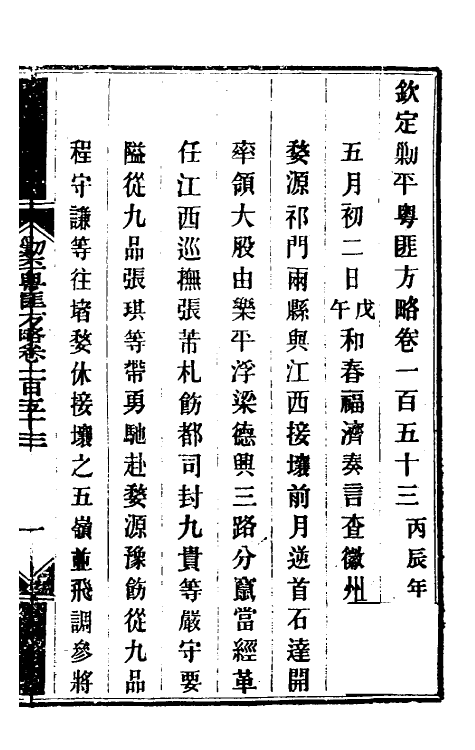 欽定勦平粵匪方略卷一百五十三 丙辰年
五月初二日戊午和春福濟奏言查徽州
婺源祁門兩縣與江西接壤前月逆首石達開
率領大股由樂平浮梁德興三路分竄當經革
任江西巡撫張芾札飭都司封九貴等嚴守要
隘從九品張琪等帶勇馳赴婺源豫飭從九品
程守謙等往堵婺休接壤之五嶺並飛調參將
勦平粵匪方略卷一百五十三
一